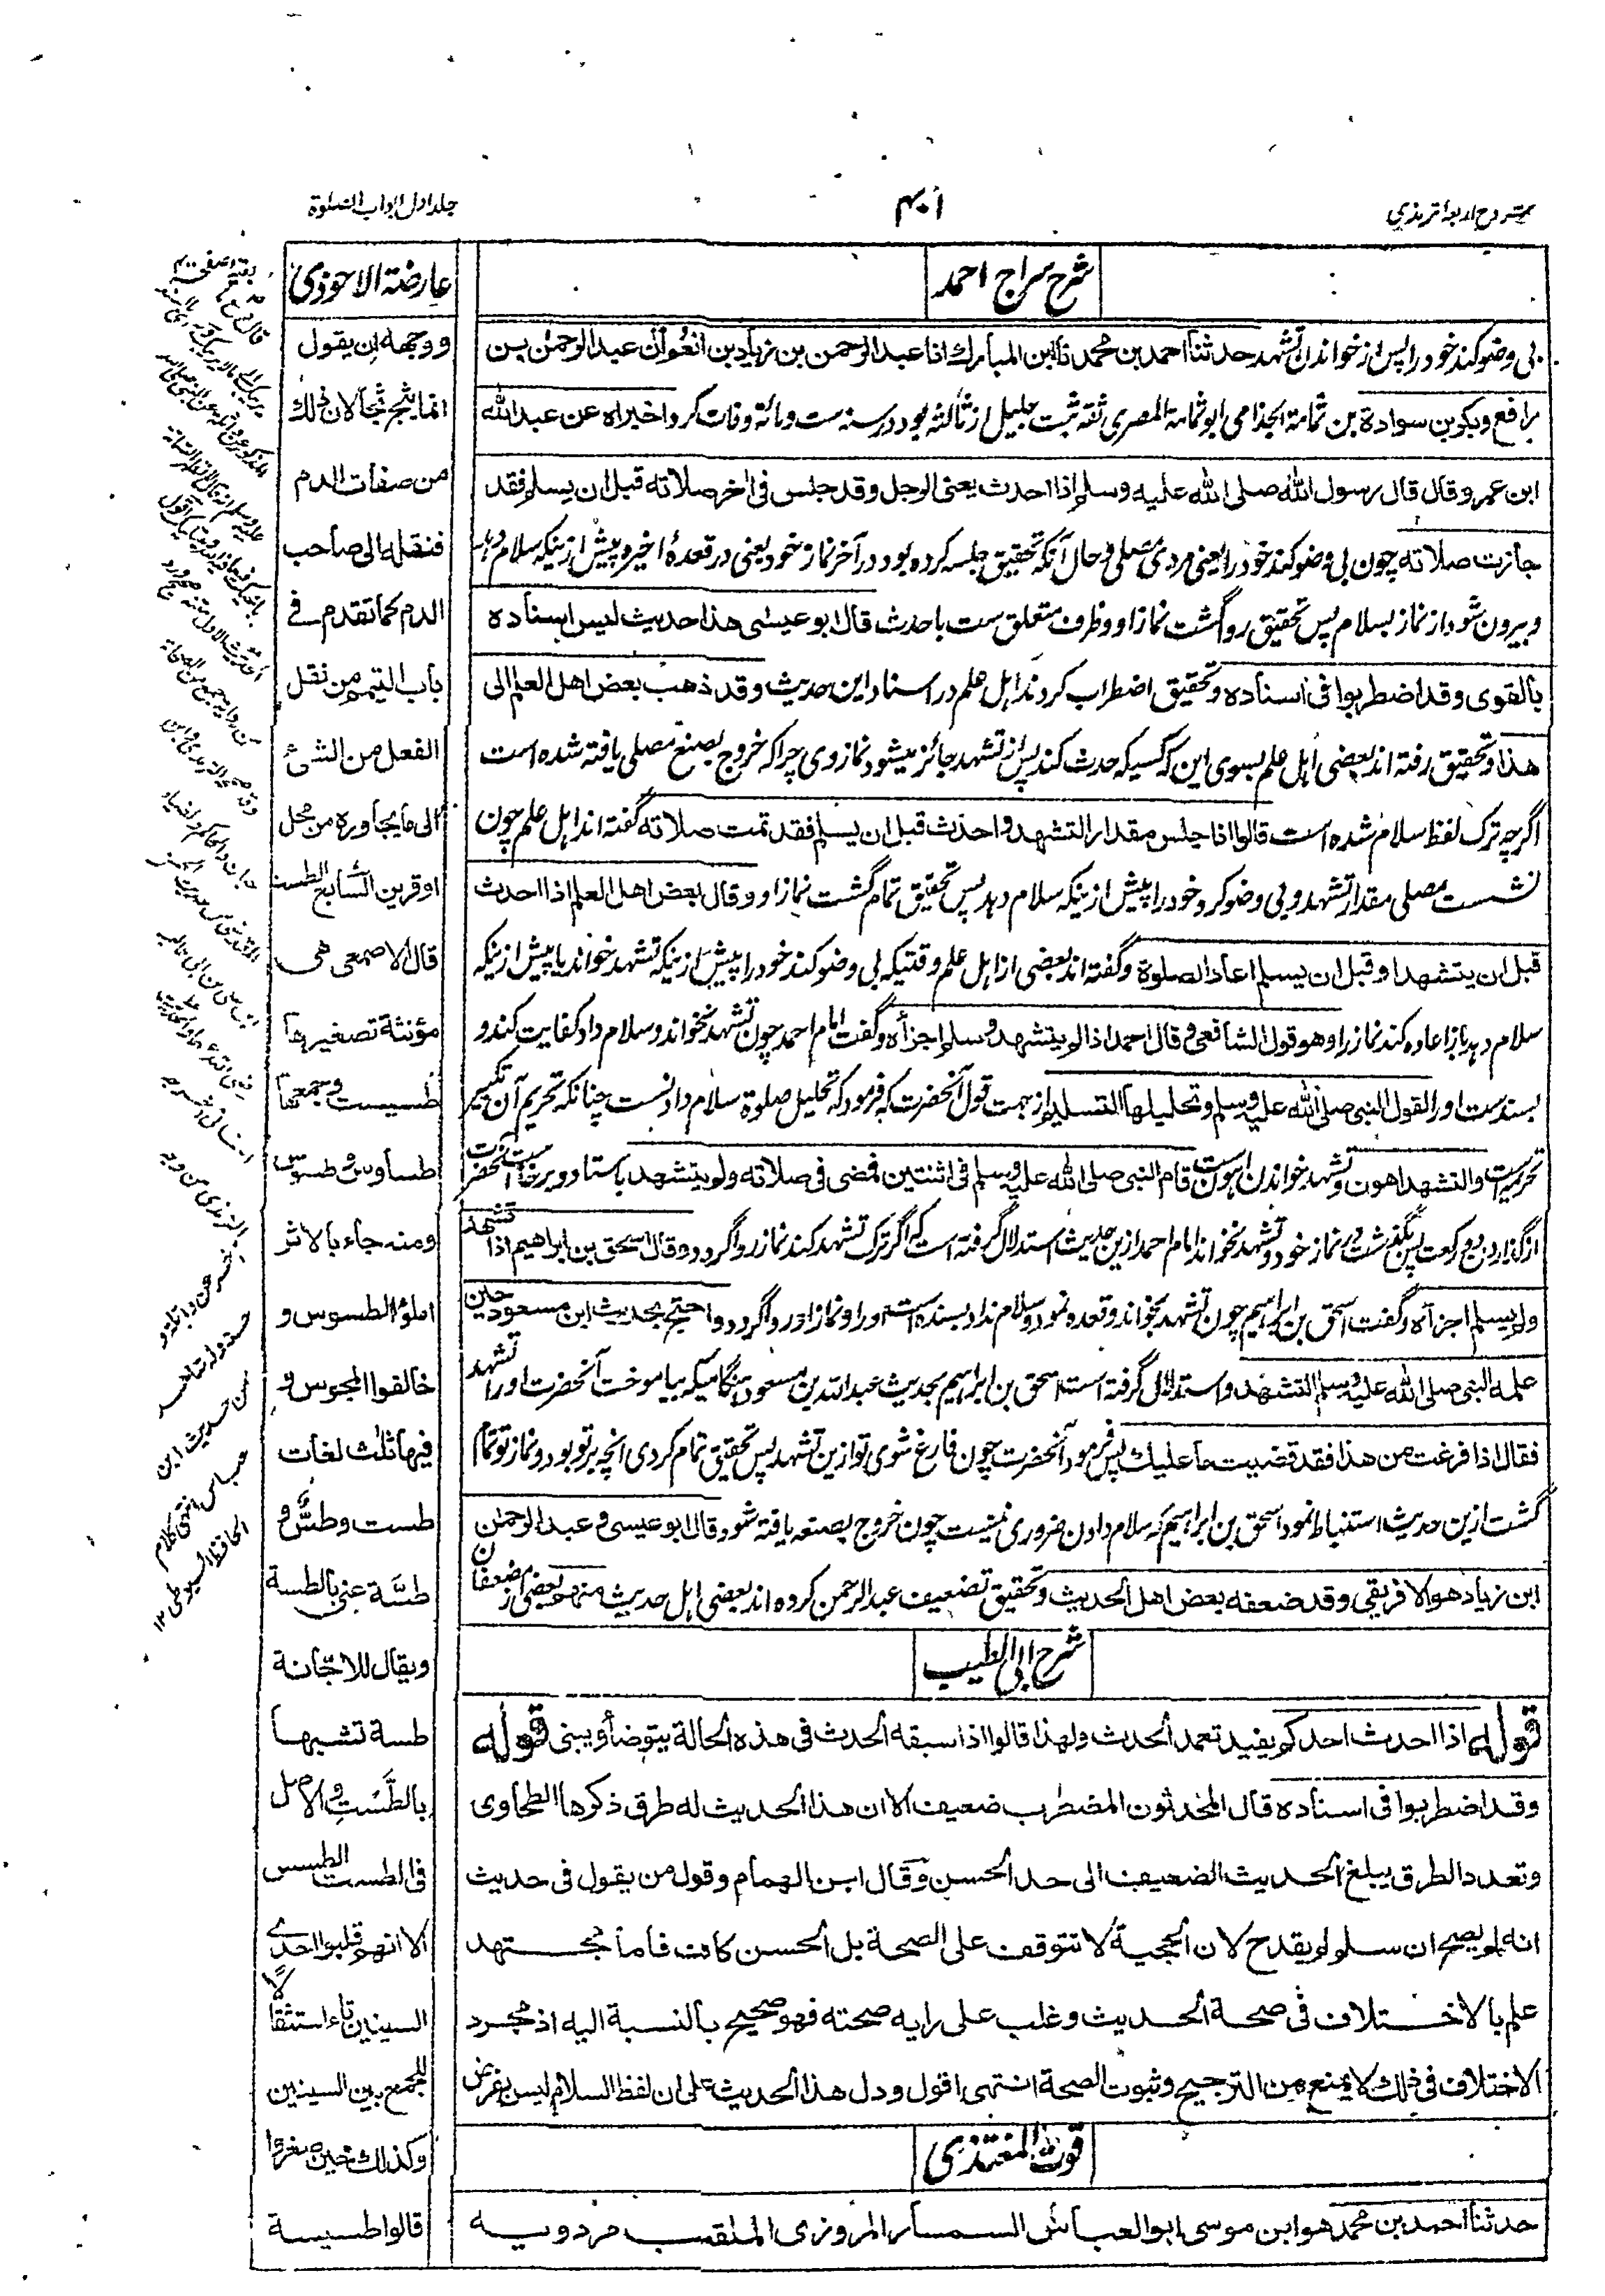 شروح اربعه ترمذي
۴۰۱
جلد اول ابواب الصلوة
شرح سراج احمد
بی وضو کند خود را پس از خواندن تشهد حدثنا احمد بن محمد نا ابن المبارك انا عبد الرحمن بن زياد بن انعم ان عبد الرحمن بن
رافع وبكر بن سوادة بن ثمامة الجذامي ابو ثمامة المصري ثقه ثبت جليل از ثالثه بود در سنه ست ومائة وفات كرد اخبراه عن عبد الله
ابن عمرو قال قال رسول الله صلى الله عليه وسلم اذا احدث يعني الرجل وقد جلس في اخر صلاته قبل ان يسلم فقد
جازت صلاته چون بی وضو کند خود را یعنی مردی مصلی و حال آنکه تحقیق جلسه کرده بود در آخر نماز خود یعنی در قعدهٔ اخیره پیش ازینکه سلام دهد
و بیرون شود از نماز بسلام پس تحقیق روا گشت نماز او و ظرف متعلق ست با حدث قال ابو عيسى هذا حديث ليس اسناده
بالقوى وقد اضطربوا فى اسناده وتحقیق اضطراب کردند اهل علم در اسناد این حدیث وقد ذهب بعض اهل العلم الى
هذا وتحقیق رفته اند بعضی اهل علم بسوی این که کسیکه حدث کند پس از تشهد جائز میشود نماز وی چراکه خروج بصنع مصلی یافته شده است
اگرچه ترک لفظ سلام شده است قالوا اذا جلس مقدار التشهد واحدث قبل ان يسلم فقد تمت صلاته گفته اند اهل علم چون
نشست مصلی مقدار تشهد و بی وضو کرد خود را پیش ازینکه سلام دهد پس تحقیق تمام گشت نماز او وقال بعض اهل العلم اذا احدث
قبل ان يتشهد او قبل ان يسلم اعاد الصلوة وگفته اند بعضی از اهل علم وقتیکه بی وضو کند خود را پیش ازینکه تشهد خواند یا پیش ازینکه
سلام دهد باز اعاده کند نماز را وهو قول الشافعي وقال احمد اذا لم يتشهد وسلم اجزأه وگفت امام احمد چون تشهد نخواند و سلام داد کفایت کند و
بسند ست او را لقول النبي صلى الله عليه وسلم وتحليلها التسليم از جهت قول آنحضرت که فرمود که تحلیل صلوة سلام دادنست چنانکه تحریم آن تکبیر
تحریمه است والتشهد اهون وتشهد خواندن اهون ست قام النبي صلى الله عليه وسلم في اثنتين فمضى في صلاته ولم يتشهد باستاد و برخاست آنحضرت
از گزاردن دو رکعت پس بگذشت در نماز خود و تشهد نخواند امام احمد ازین حدیث استدلال گرفته است که اگر ترک تشهد کند نماز روا گردد وقال اسحق بن ابراهيم اذا تشهد
ولم يسلم اجزأه وگفت اسحق بن ابراهیم چون تشهد بخواند و قعده نمود و سلام نداد بسنده است او را و نماز او روا گردد واحتج بحديث ابن مسعود حين
علمه النبي صلى الله عليه وسلم التشهد و استدلال گرفته است اسحق بن ابراهیم بحدیث عبدالله بن مسعود هنگامیکه بیاموخت آنحضرت او را تشهد
فقال اذا فرغت من هذا فقد قضيت ما عليك پس فرمود آنحضرت چون فارغ شوی تو ازین تشهد پس تحقیق تمام کردی آنچه بر تو بود و نماز تو تمام
گشت ازین حدیث استنباط نمود اسحق بن ابراهیم که سلام دادن ضروری نیست چون خروج بصنعه یافته شود قال ابو عيسى وعبد الرحمن
ابن زياد هو الافريقي وقد ضعفه بعض اهل الحديث وتحقیق تضعیف عبدالرحمن کرده اند بعضی اهل حدیث منهم بعضی از ضعفان
شرح ابی الطیب
قوله اذا احدث احدكم يفيد تعمد الحدث ولهذا قالوا اذا سبقه الحدث فى هذه الحالة يتوضأ ويبنى قوله
وقد اضطربوا فى اسناده قال المحدثون المضطرب ضعيف الا ان هذا الحديث له طرق ذكرها الطحاوى
وتعدد الطرق يبلغ الحديث الضعيف الى حد الحسن وقال ابن الهمام وقول من يقول فى حديث
انه لم يصح ان سلم لم يقدح لان الحجية لا تتوقف على الصحة بل الحسن كاف فاما مجتهد
علم بالاختلاف فى صحة الحديث وغلب على رايه صحته فهو صحيح بالنسبة اليه اذ مجرد
الاختلاف فى ذلك لا يمنع من الترجيح وثبوت الصحة انتهى اقول ودل هذا الحديث على ان لفظ السلام ليس بفرض
قوت المغتذي
حدثنا احمد بن محمد هو ابن موسى ابو العباس السمسار المروزى الملقب مردويه
عارضة الاحوذي
ووجهه ان يقول
انما يثج ثجا لان ذلك
من صفات الدم
فنقله الى صاحب
الدم كما تقدم في
باب التيمم من نقل
الفعل من الشئ
الى ما يجاوره من محل
او قرين السابع الطست
قال الاصمعي هي
مؤنثة تصغيرها
طسيست وجمعها
طساوس وطسوس
ومنه جاء بالاثر
املؤا الطسوس و
خالفوا المجوس و
فيها ثلث لغات
طست وطس و
طسة عنى بالطسة
ويقال للاجانة
طسة تشبيها
بالطست والاصل
فى الطست الطسس
الا انهم قلبوا احدى
السينين تاء استثقالا
للجمع بين السينين
وكذلك حين صغروا
قالوا طسيسة
بقية صفحه ۴۰۰
حسنه وله شاهد
من حديث ابن
عباس انتهى كلام
الحافظ السيوطى ۱۲